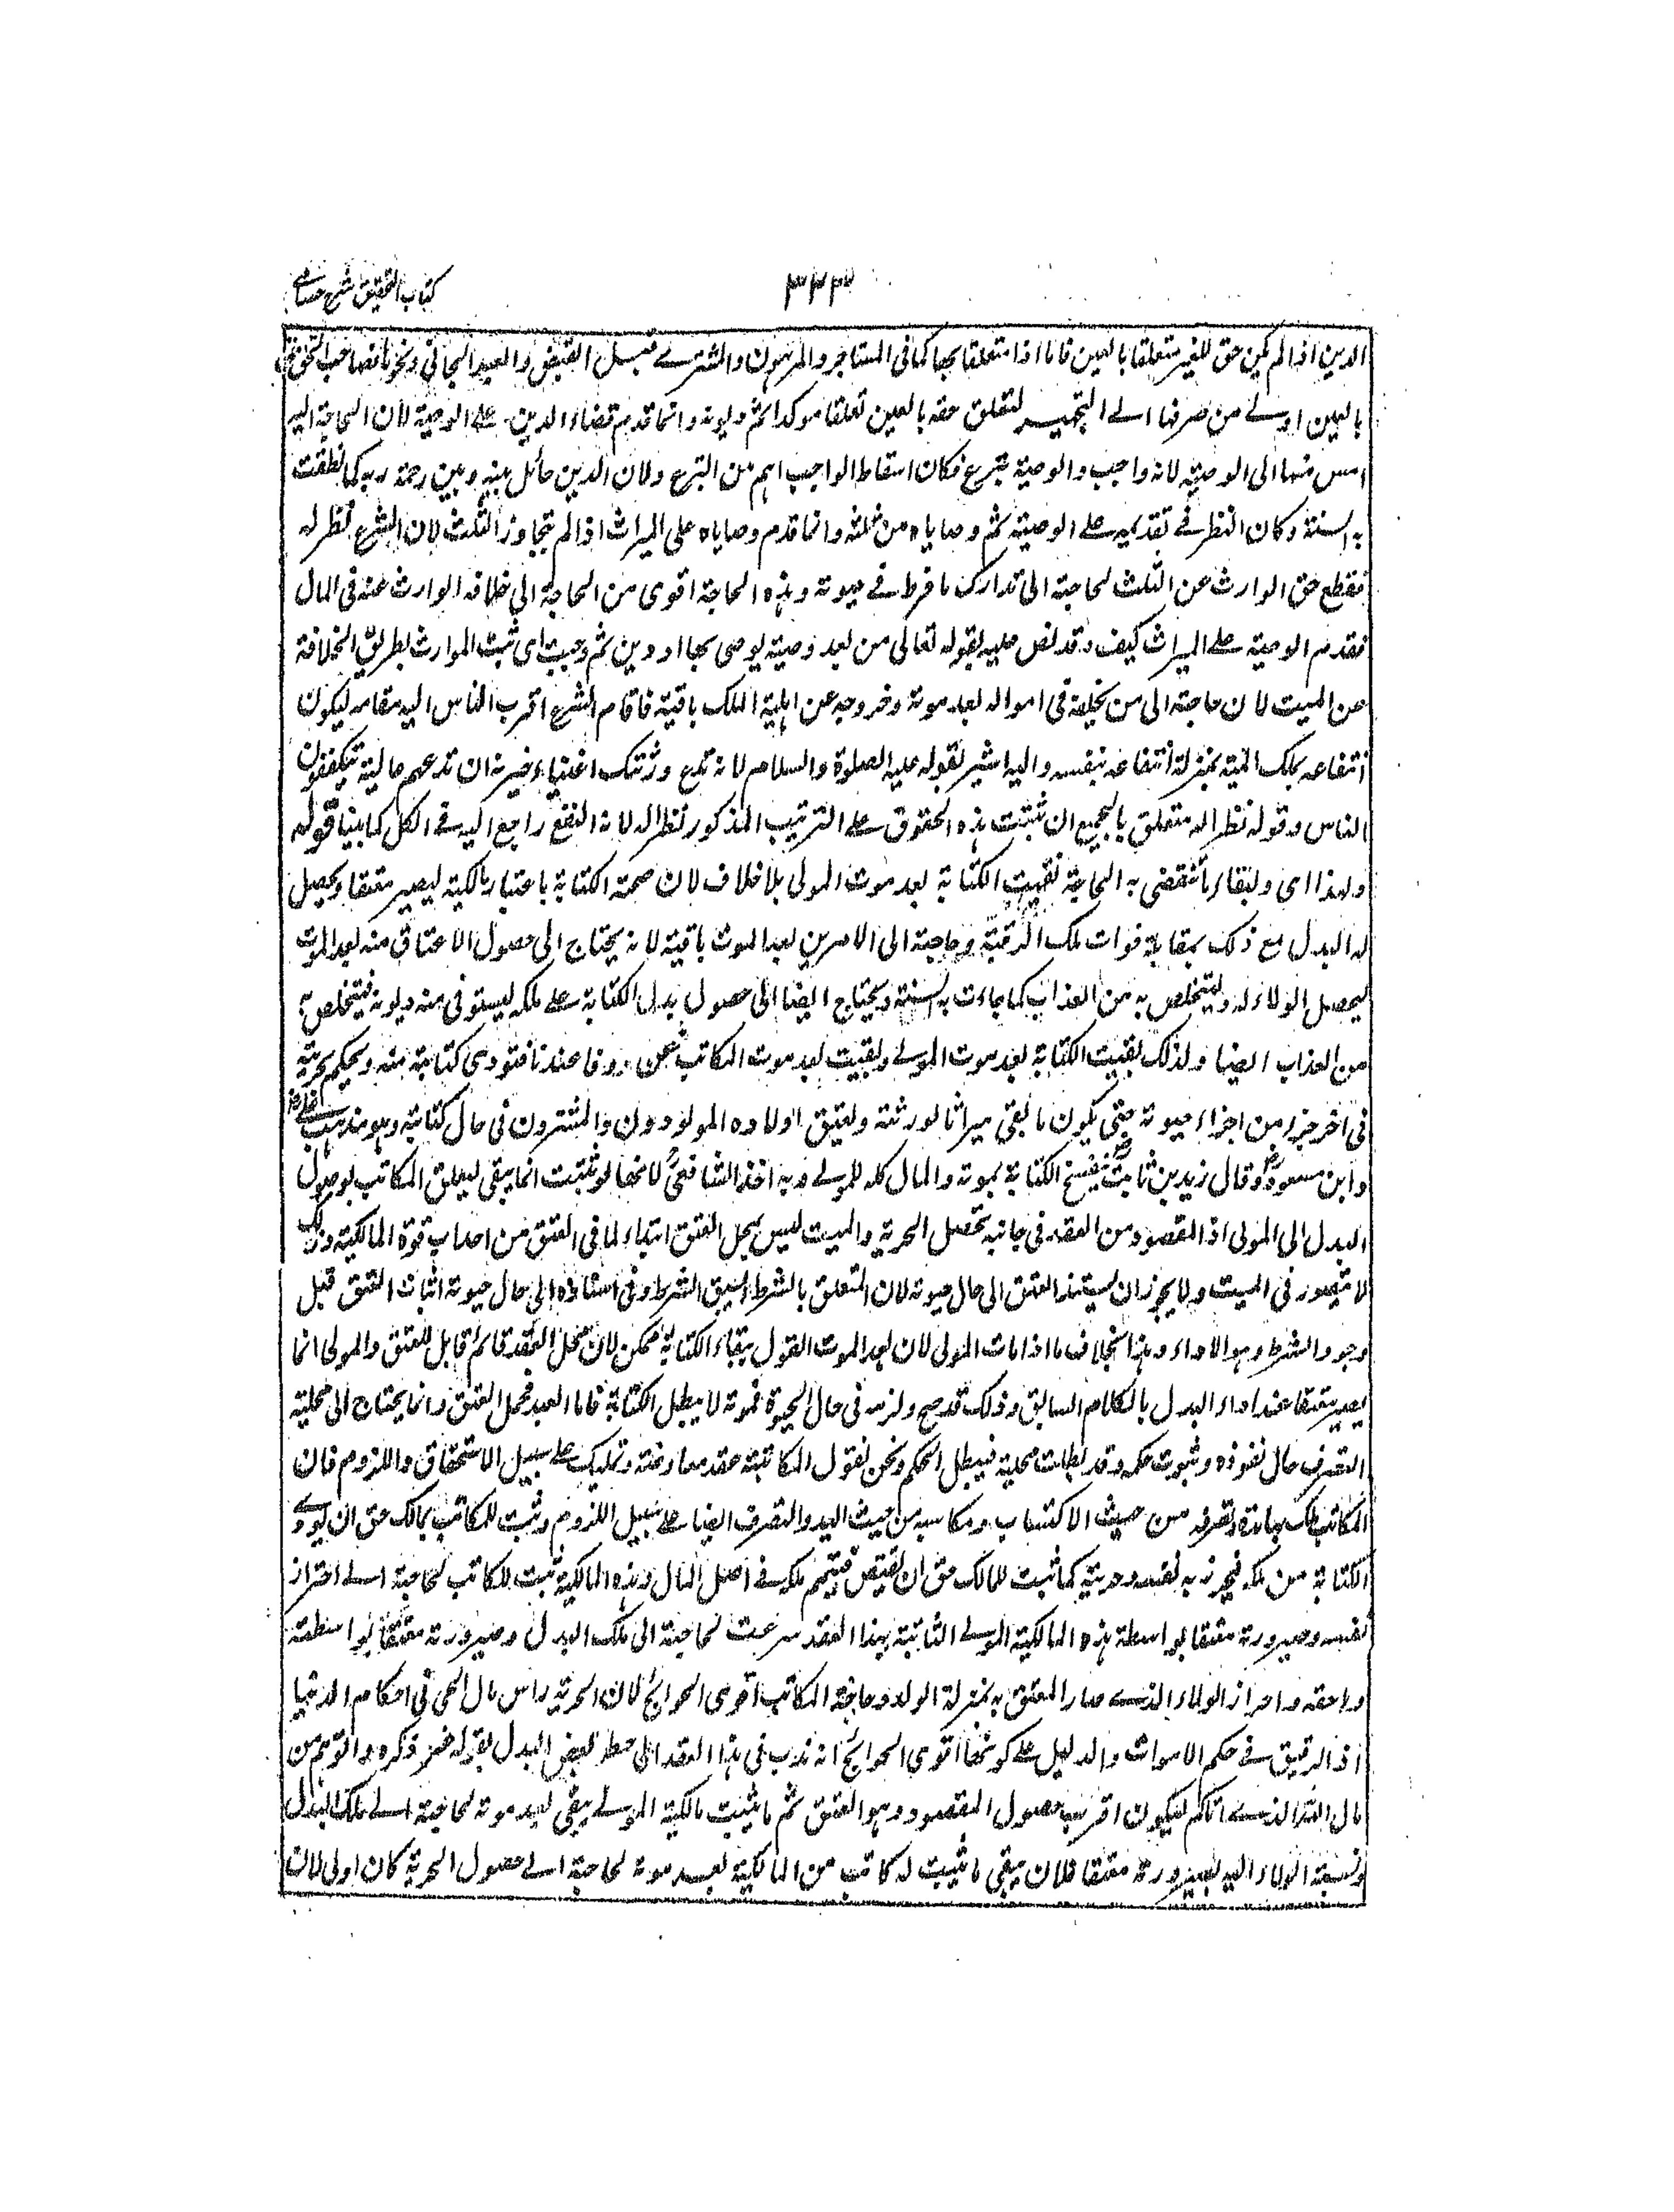 ۳۳۲
كتاب التحقيق شرح حسامي
الدين اذا لم يكن حق للغير متعلقا بالعين فاما اذا متعلقا بها كما في المستاجر والمرهون والمشترے قبل القبض والعبد الجاني ونحوها فصاحب الحق
بالعين اولے من صرفها الے التجهيز لتعلق حقه بالعين تعلقا موكدا ثم ديونه وانما قدم قضاء الدين علے الوصية لان الحاجة اليه
امس منها الى الوصية لانه واجب والوصية تبرع فكان اسقاط الواجب اهم من التبرع ولان الدين حائل بينه وبين رحمة ربه كما نطقت
به السنة وكان النظر فے تقديمه علے الوصية ثم وصاياه من ثلثه وانما قدم وصاياه على الميراث اذا لم تتجاوز الثلث لان الشرع نظر له
فقطع حق الوارث عن الثلث لحاجته الى تدارك ما فرط فے حيوته وهذه الحاجة اقوى من الحاجة الى خلافه الوارث عنه في المال
فقدم الوصية علے الميراث كيف وقد نص عليه بقوله تعالى من بعد وصية يوصى بها او دين ثم وجبت اى ثبت الموارث بطريق الخلافة
عن الميت لان حاجته الى من يخلفه في امواله بعد موته وخروجه عن اهلية الملك باقية فاقام الشرع اقرب الناس اليه مقامه ليكون
انتفاعه بملك الميت بمنزلة انتفاعه بنفسه واليه اشير بقوله عليه الصلوة والسلام لانه تدع ورثتك اغنياء خير من ان تدعهم عالية يتكففون
الناس وقوله نظرا له متعلق بالجميع ان ثبتت هذه الحقوق علے الترتيب المذكور نظرا له لانه النفع راجع اليه فے الكل كما بينا قوله
ولهذا اى ولبقاء ما تنقضى به الحاجة بقيت الكتابة بعد موت المولى بلا خلاف لان صحة الكتابة باعتبار مالكية ليصير معتقا ويحصل
له البدل مع ذلك بمقابلة فوات ملك الرقبة وحاجته الى الامرين بعد الموت باقية لانه يحتاج الى حصول الاعتاق منه بعد الموت
ليحصل الولاء له وليتخلص به من العذاب كما جاءت به السنة ويحتاج ايضا الى حصول بدل الكتابة علے ملكه ليستوفى منه ديونه فيتخلص به
من العذاب ايضا ولذلك بقيت الكتابة بعد موت المولے وبقيت بعد موت المكاتب عن وفا عندنا فتودى كتابته منه ويحكم بحريته
في اخر جزء من اجزاء حيوته حتى يكون ما بقى ميراثا لورثته ويعتق اولاده المولودون والمشترون في حال كتابته وهو مذهب علے
وابن مسعود وقال زيد بن ثابت تنفسخ الكتابة بموته والمال كله للمولے وبه اخذ الشافعى لانها لو ثبتت انما يبقى ليعتق المكاتب بوصول
البدل الى المولى اذ المقصود من العقد في جانبه تحصل الحرية والميت ليس بمحل العتق ابتداء لما في العتق من احداث قوة المالكية وذلك
لا يتصور في الميت ولا يجوز ان يستند العتق الى حال حيوته لان المتعلق بالشرط لا يسبق الشرط وفي اسناده الى حال حيوته اثبات العتق قبل
وجود الشرط وهو الاداء وهذا بخلاف ما اذا مات المولى لان بعد الموت القول ببقاء الكتابة ممكن لان محل العقد قائم قابل للعتق والمولى انما
يصير معتقا عند اداء البدل بالكلام السابق وذلك قد صح ولزمه في حال الحيوة فموته لا يبطل الكتابة فاما العبد فمحل العتق وانما يحتاج الى محلية
التصرف حال نفوذه وثبوت حكمه وقد بطلت محلية فيبطل الحكم ونحن نقول المكاتبة عقد معاوضة وتمليك علے سبيل الاستحقاق واللزوم فان
المكاتب ملك تصرف من حيث الاكتساب ومكاسبه من حيث اليد والتصرف ايضا علے سبيل اللزوم وثبت للمكاتب بمالك حق ان يودے
الكتابة من ملكه فيحرز به نفسه وحريته كما ثبت للمالك حق ان يقبض فيتم ملكه فے اصل المال وهذه المالكية ثبت للمكاتب لحاجته الے احراز
نفسه وصيرورته معتقا بواسطة هذه المالكية المولے الثابتة بهذا العقد شرعت لحاجته الى ملك البدل وصيرورته معتقا بواسطته
واحراز الولاء الذے صار المعتق به بمنزلة الولد وحاجة المكاتب اقوى الحوائج لان الحرية راس مال الحى في احكام الدنيا
اذ الرقيق فے حكم الاموات والدليل علے كونها اقوى الحوائج انه ندب في هذا العقد الى حط بعض البدل بقوله عز ذكره واتوهم من
مال الله الذے اتاكم ليكون اقرب حصول المقصود وهو العتق ثم ما ثبت مالكية المولے يبقى بعد موته لحاجته الے ملك البدل
ونسبة الولاء اليه لصيرورته معتقا فلان يبقى ما ثبت لمكاتب من المالكية بعد موته لحاجته الے حصول الحرية كان اولى لان